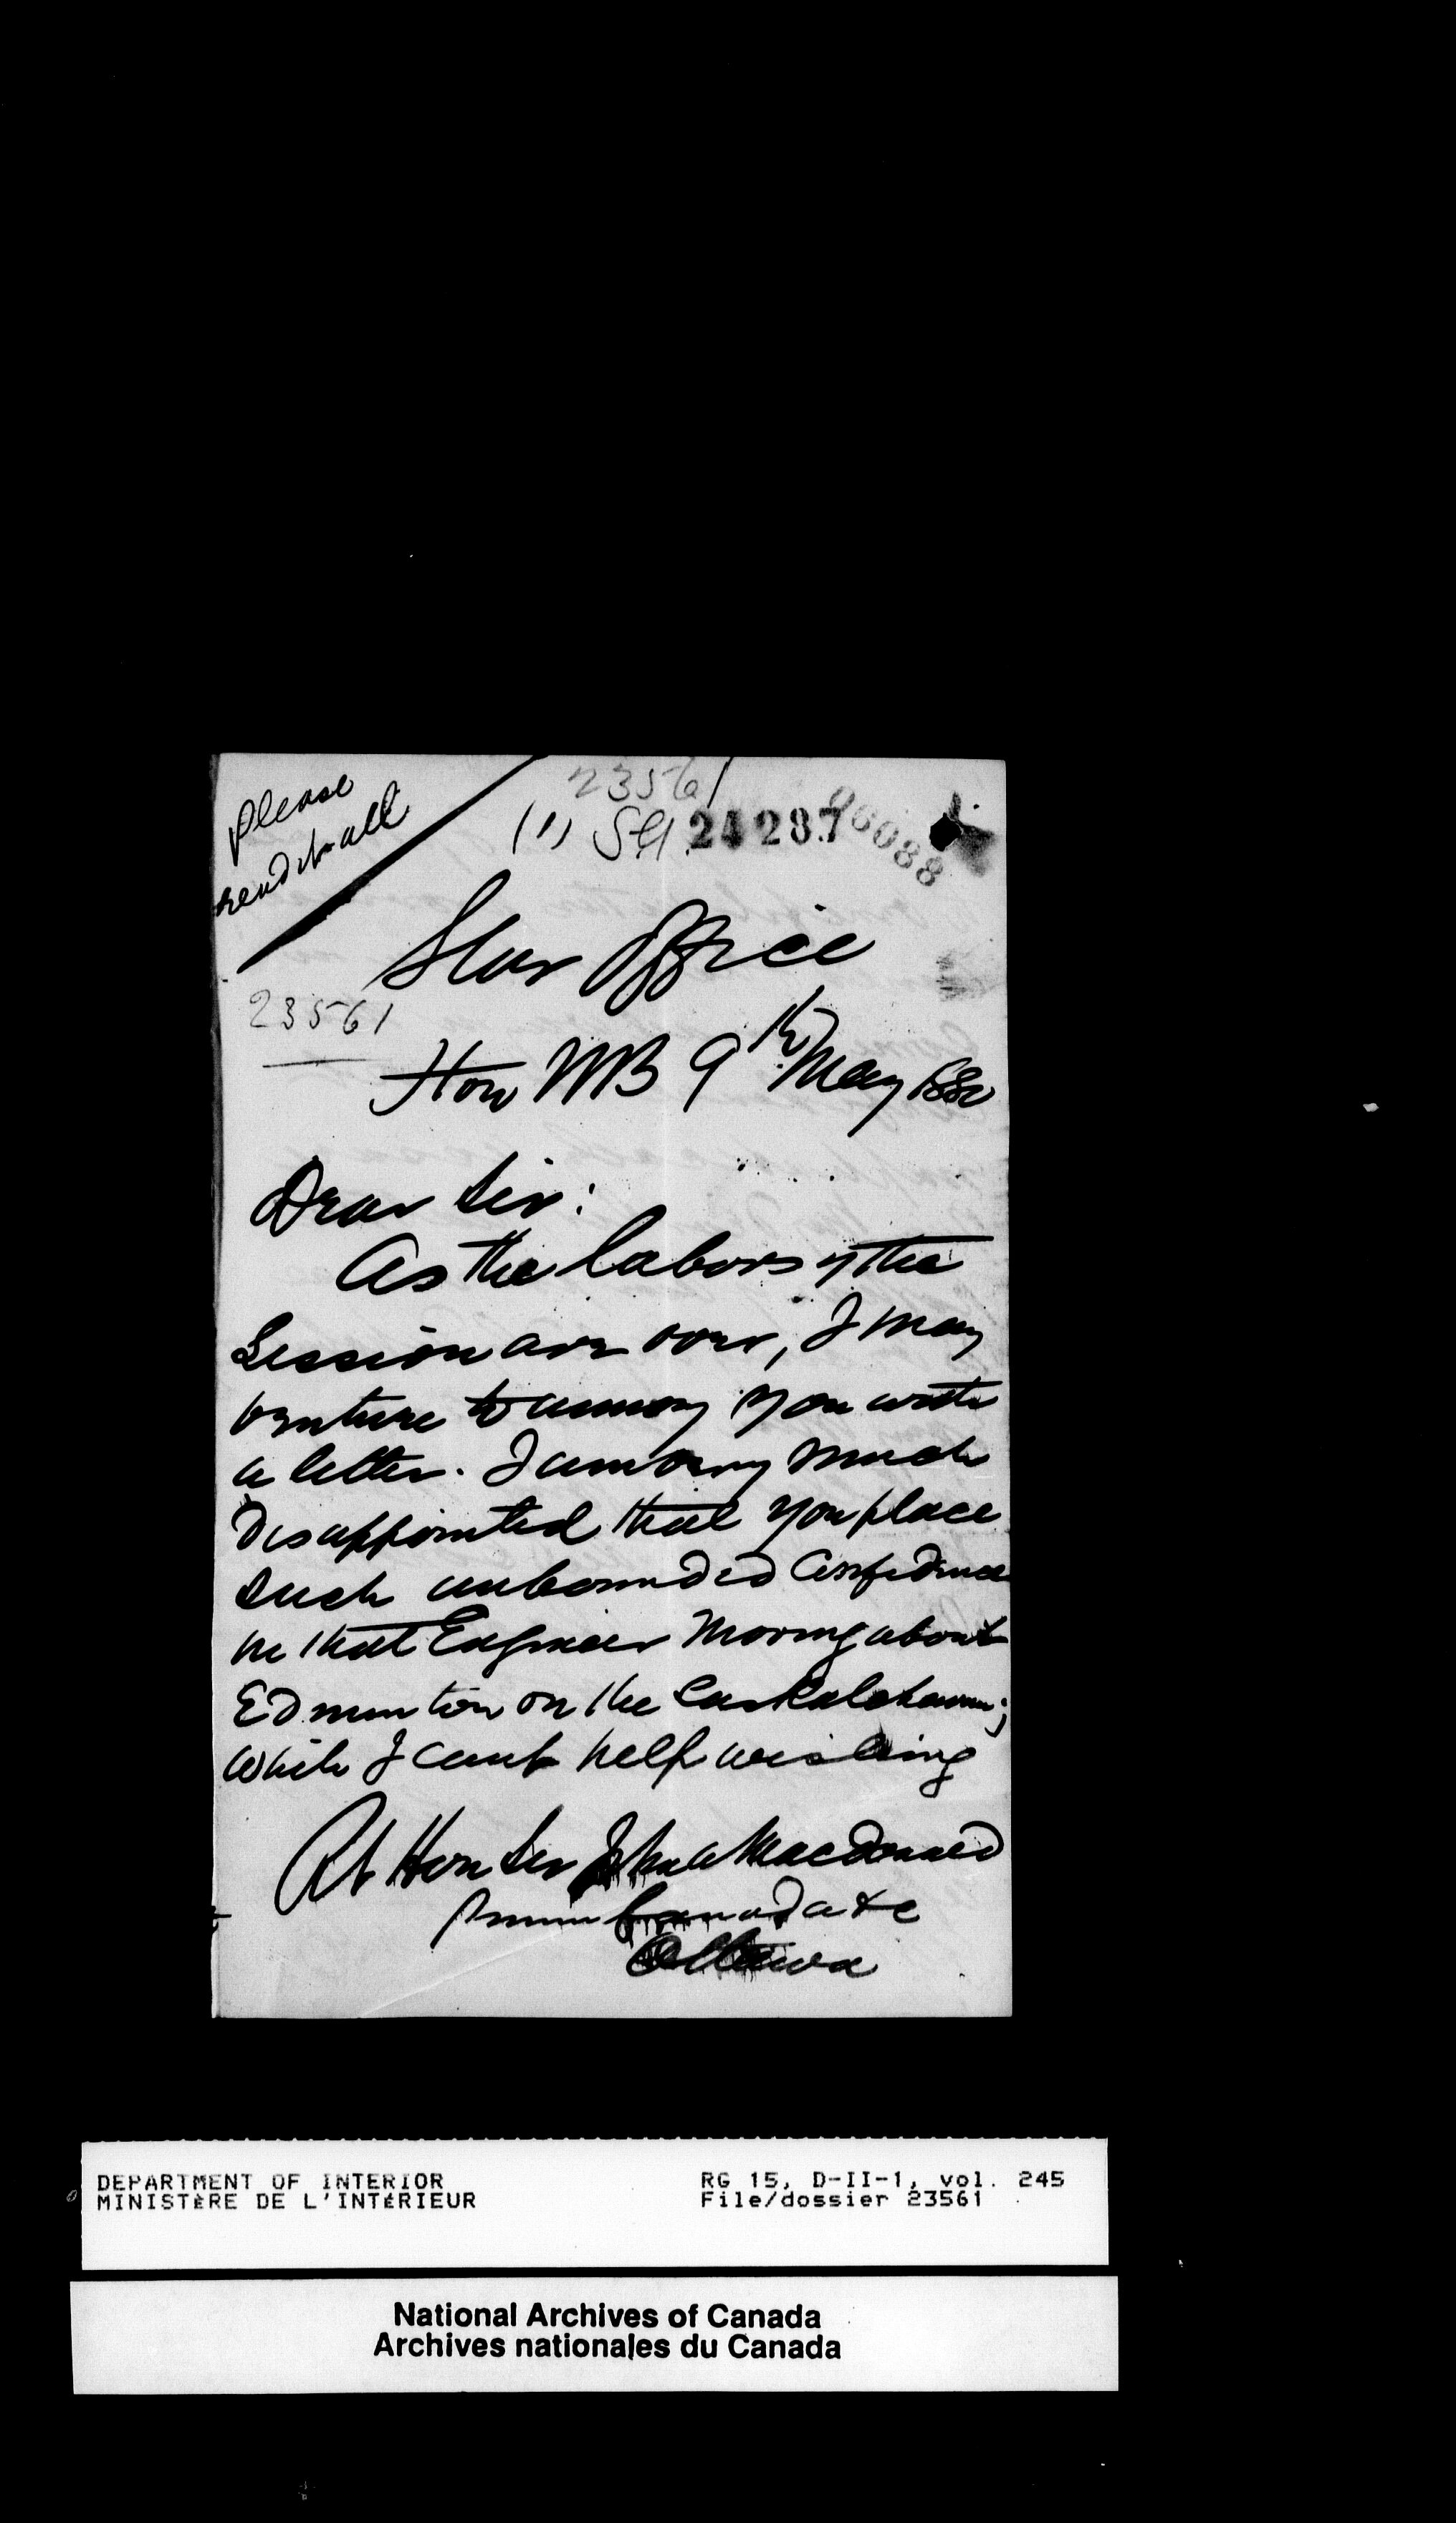 23561
Please
read it all
(1) 24287
06088
Star Office
23561
How NB 9th May 1880
Dear Sir:
As the labors of the
Session are over, I may
venture to annoy you with
a letter. I am very much
disappointed that you place
such unbounded confidence
in that Engineer moving about
Edmonton on the Saskatchewan;
while I cant help wishing
Rt Hon Sir John A Macdonald
Canada &c
Ottawa
DEPARTMENT OF INTERIOR
MINISTÈRE DE L'INTÉRIEUR
RG 15, D-II-1, vol. 245
File/dossier 23561
National Archives of Canada
Archives nationales du Canada